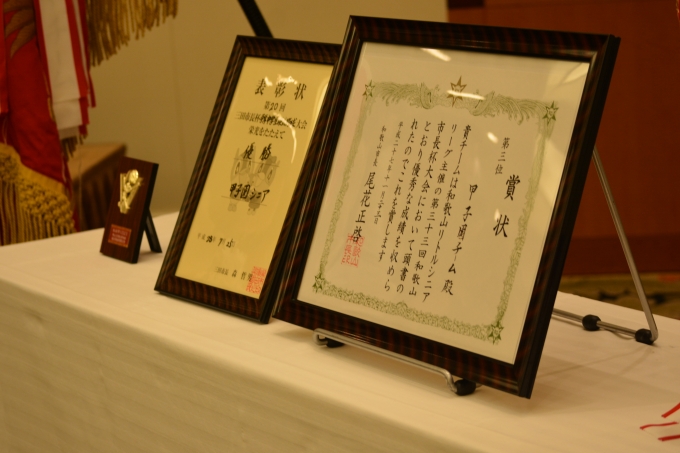 表彰状
第20回
三田市長杯
栄光をたたえて
優勝
甲子園シニア
賞状
第三位
甲子園チーム殿
貴チームは和歌山リトルシニア
リーグ主催の第三十三回和歌山
市長杯大会において頭書の
とおり優秀な成績を収めら
れたのでこれを賞します
和歌山市長 尾花正啓